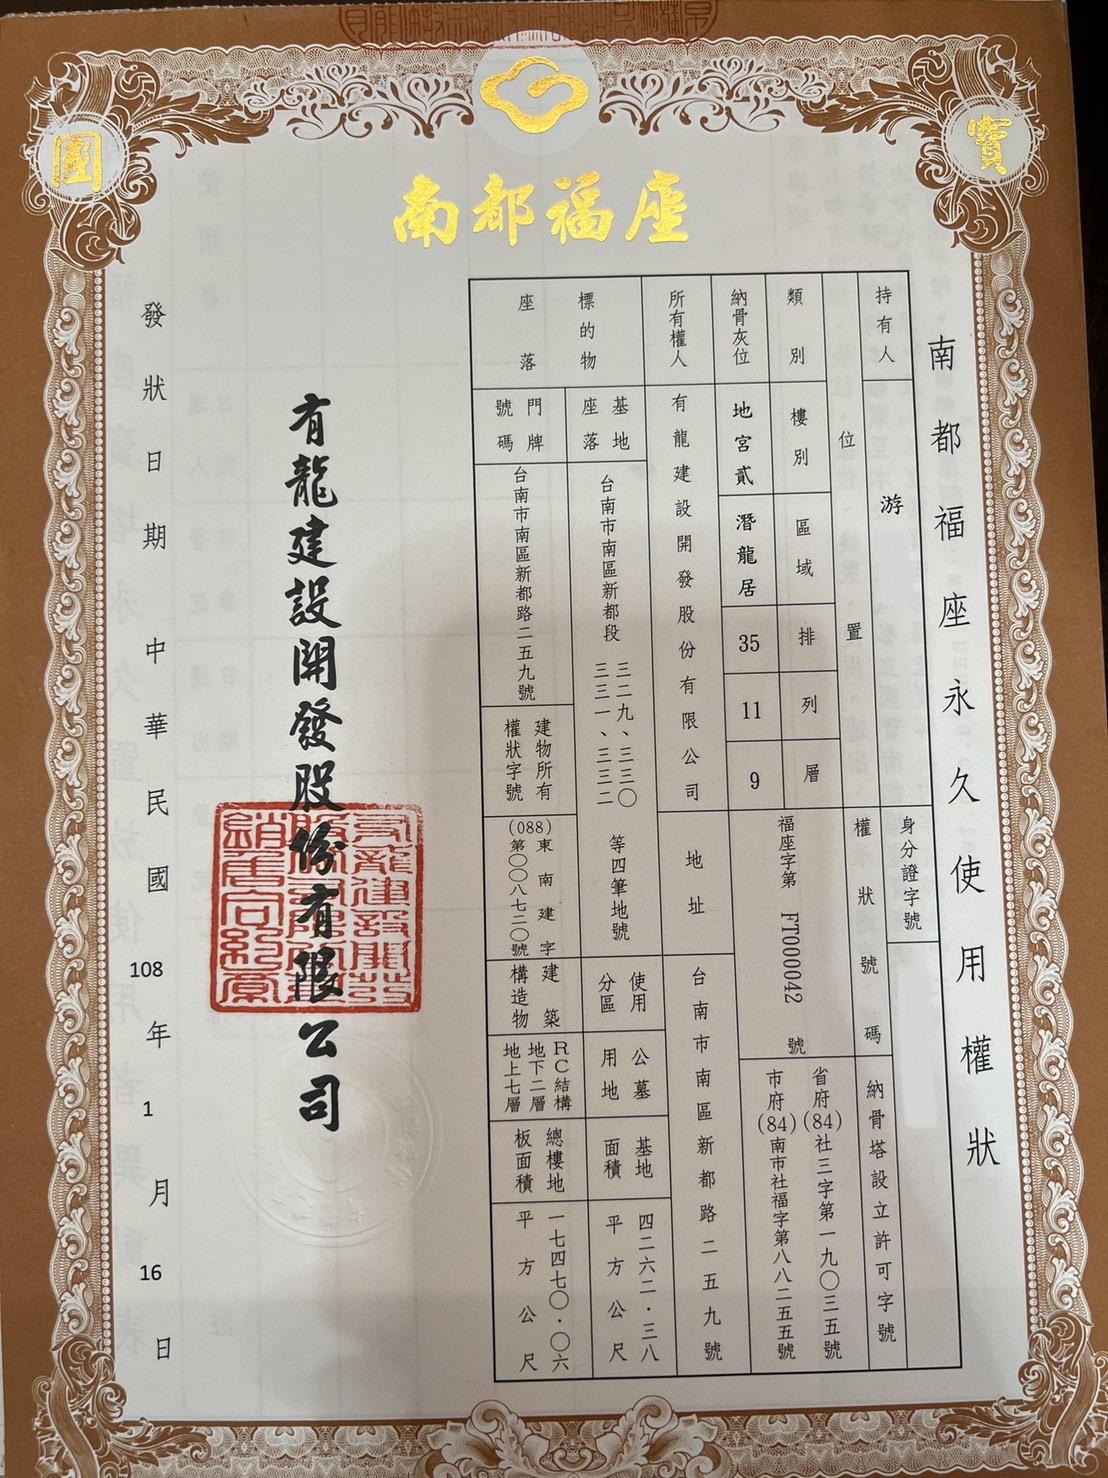 國
寶
南都福座
南都福座永久使用權狀
持有人
游
身分證字號
位置
權狀號碼
納骨塔設立許可字號
類別
樓別
區域
排
列
層
福座字第 FT000042 號
省府(84)社三字第一九〇三五號
市府(84)南市社福字第八八二五五號
納骨灰位
地宮貳
潛龍居
35
11
9
所有權人
有龍建設開發股份有限公司
地址
台南市南區新都路二五九號
標的物
座落
基地
座落
台南市南區新都段
三二九、三三〇
三三一、三三二
等四筆地號
使用
分區
公墓
用地
基地
面積
四二六二·三八
平方公尺
門牌
號碼
台南市南區新都路二五九號
建物所有
權狀字號
(088)東南建字
第〇〇八七二〇號
建築
構造物
RC結構
地下二層
地上七層
總樓地
板面積
一七四七〇·〇六
平方公尺
有龍建設開發股份有限公司
發狀日期 中華民國 108 年 1 月 16 日